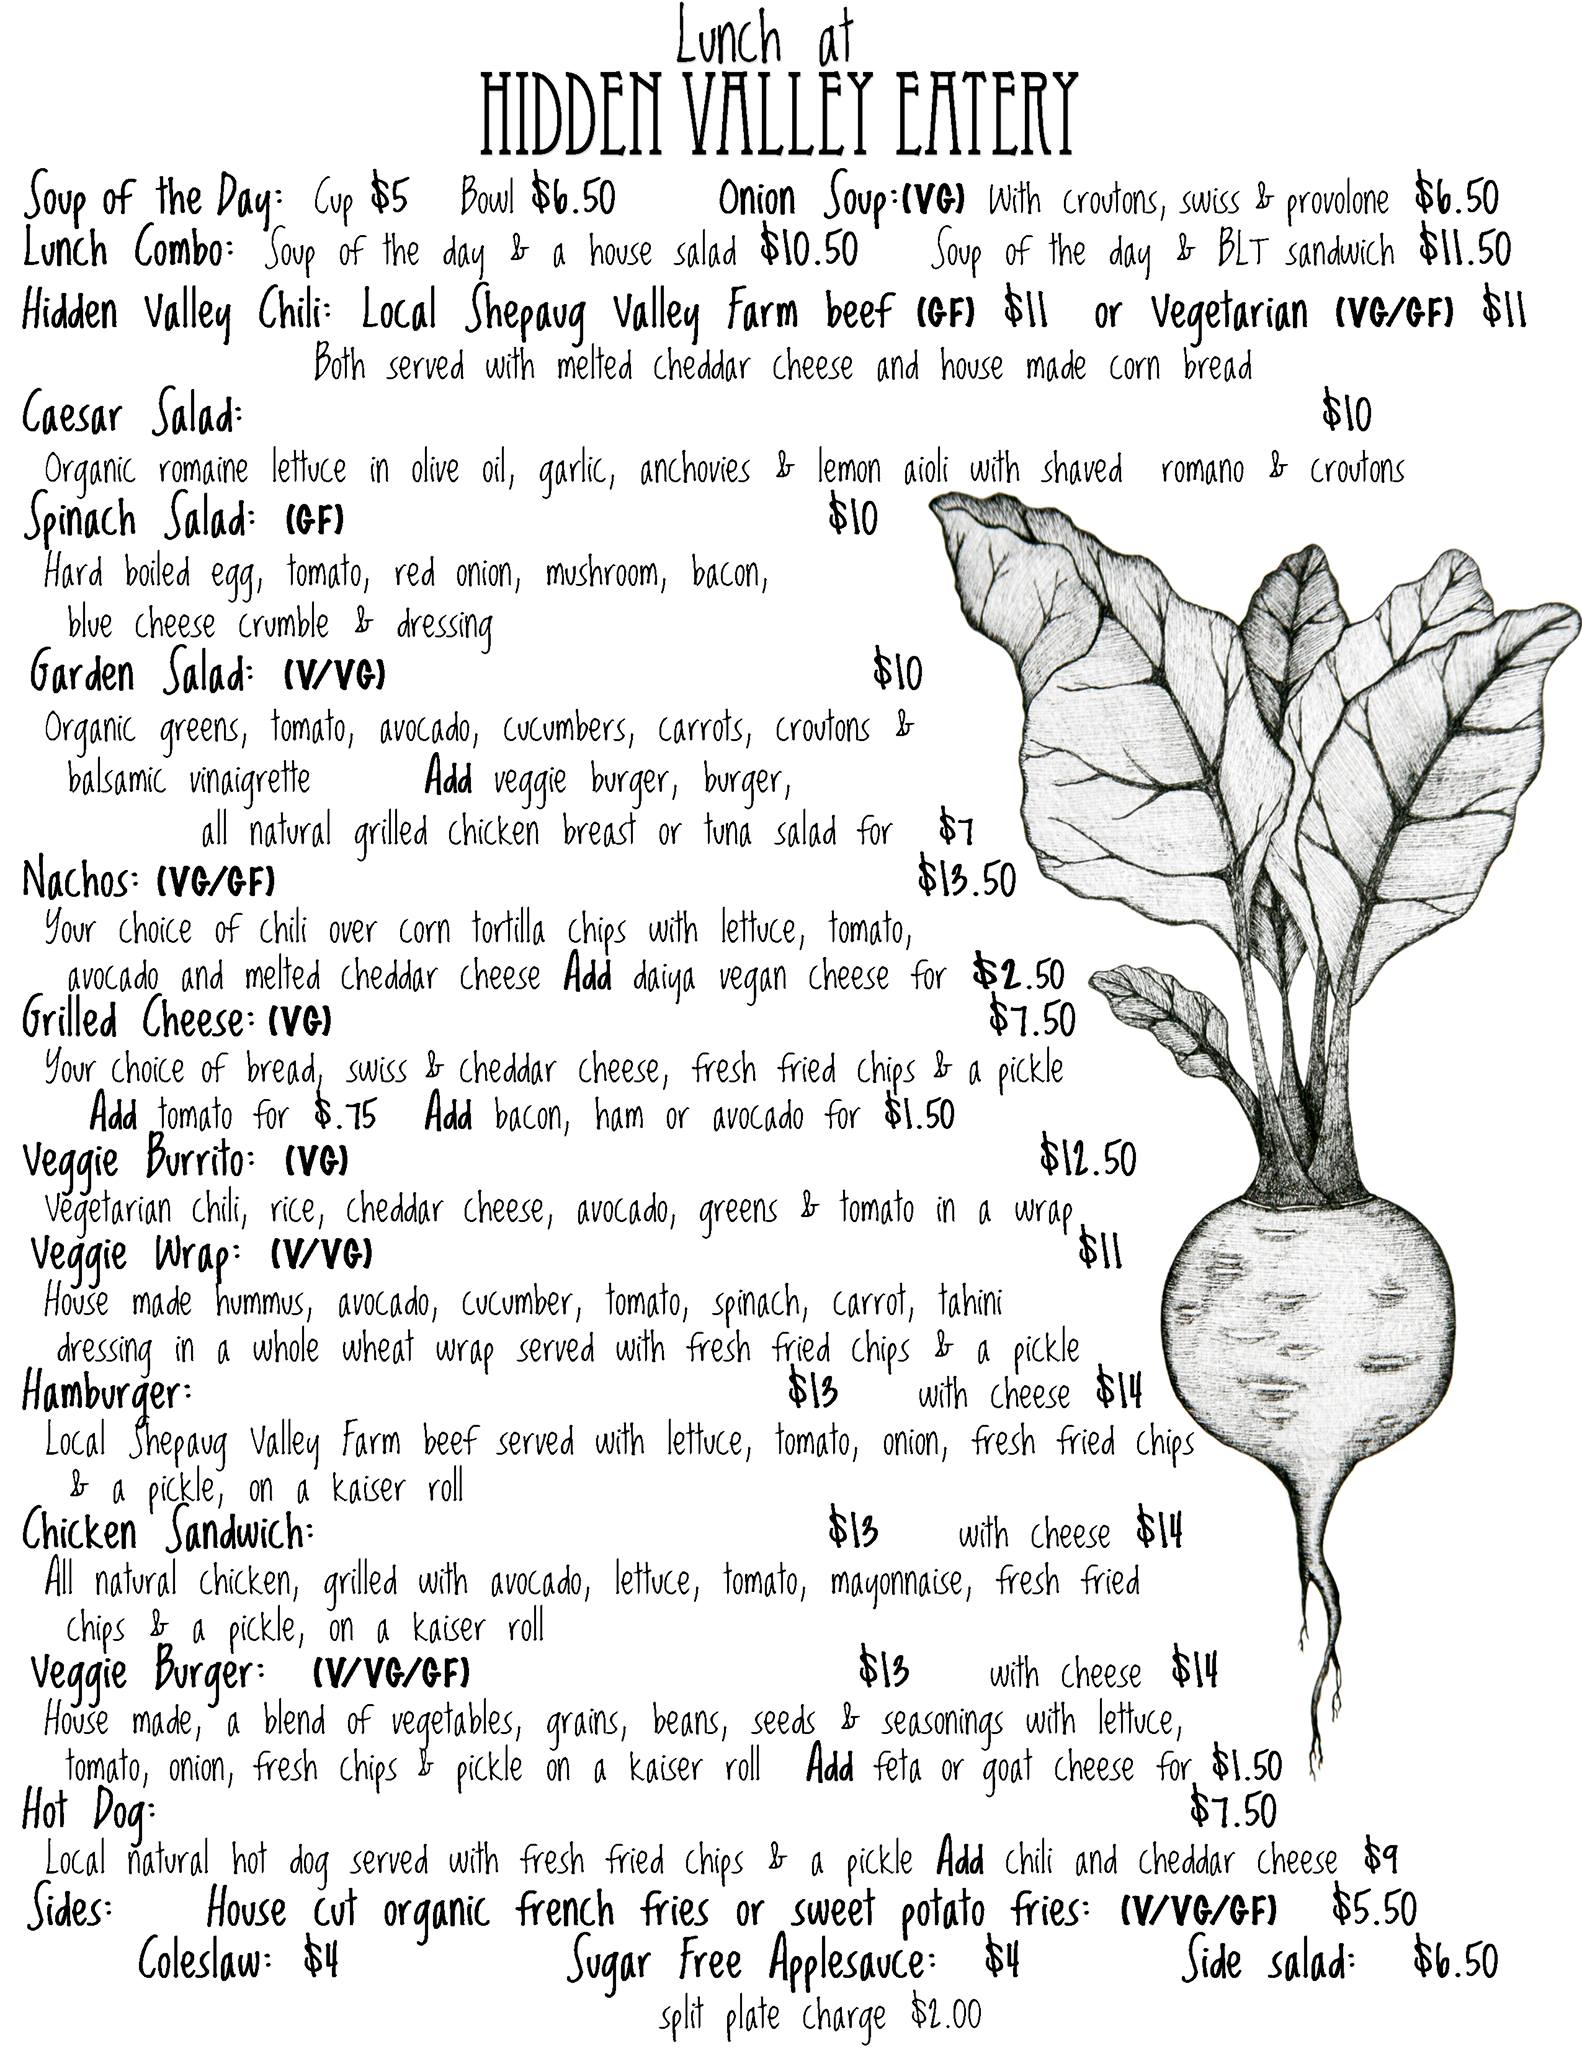 Lunch at
HIDDEN VALLEY EATERY
Soup of the Day: Cup $5 Bowl $6.50 Onion Soup:(VG) With croutons, swiss & provolone $6.50
Lunch Combo: Soup of the day & a house salad $10.50 Soup of the day & BLT sandwich $11.50
Hidden Valley Chili: Local Shepaug Valley Farm beef (GF) $11 or Vegetarian (VG/GF) $11
Both served with melted cheddar cheese and house made corn bread
Caesar Salad: $10
Organic romaine lettuce in olive oil, garlic, anchovies & lemon aioli with shaved romano & croutons
Spinach Salad: (GF) $10
Hard boiled egg, tomato, red onion, mushroom, bacon,
blue cheese crumble & dressing
Garden Salad: (V/VG) $10
Organic greens, tomato, avocado, cucumbers, carrots, croutons &
balsamic vinaigrette Add veggie burger, burger,
all natural grilled chicken breast or tuna salad for $7
Nachos: (VG/GF) $13.50
Your choice of chili over corn tortilla chips with lettuce, tomato,
avocado and melted cheddar cheese Add daiya vegan cheese for $2.50
Grilled Cheese: (VG) $7.50
Your choice of bread, swiss & cheddar cheese, fresh fried chips & a pickle
Add tomato for $.75 Add bacon, ham or avocado for $1.50
Veggie Burrito: (VG) $12.50
Vegetarian chili, rice, cheddar cheese, avocado, greens & tomato in a wrap
Veggie Wrap: (V/VG) $11
House made hummus, avocado, cucumber, tomato, spinach, carrot, tahini
dressing in a whole wheat wrap served with fresh fried chips & a pickle
Hamburger: $13 with cheese $14
Local Shepaug Valley Farm beef served with lettuce, tomato, onion, fresh fried chips
& a pickle, on a kaiser roll
Chicken Sandwich: $13 with cheese $14
All natural chicken, grilled with avocado, lettuce, tomato, mayonnaise, fresh fried
chips & a pickle, on a kaiser roll
Veggie Burger: (V/VG/GF) $13 with cheese $14
House made, a blend of vegetables, grains, beans, seeds & seasonings with lettuce,
tomato, onion, fresh chips & pickle on a kaiser roll Add feta or goat cheese for $1.50
Hot Dog: $7.50
Local natural hot dog served with fresh fried chips & a pickle Add chili and cheddar cheese $9
Sides: House cut organic french fries or sweet potato fries: (V/VG/GF) $5.50
Coleslaw: $4 Sugar Free Applesauce: $4 Side salad: $6.50
split plate charge $2.00